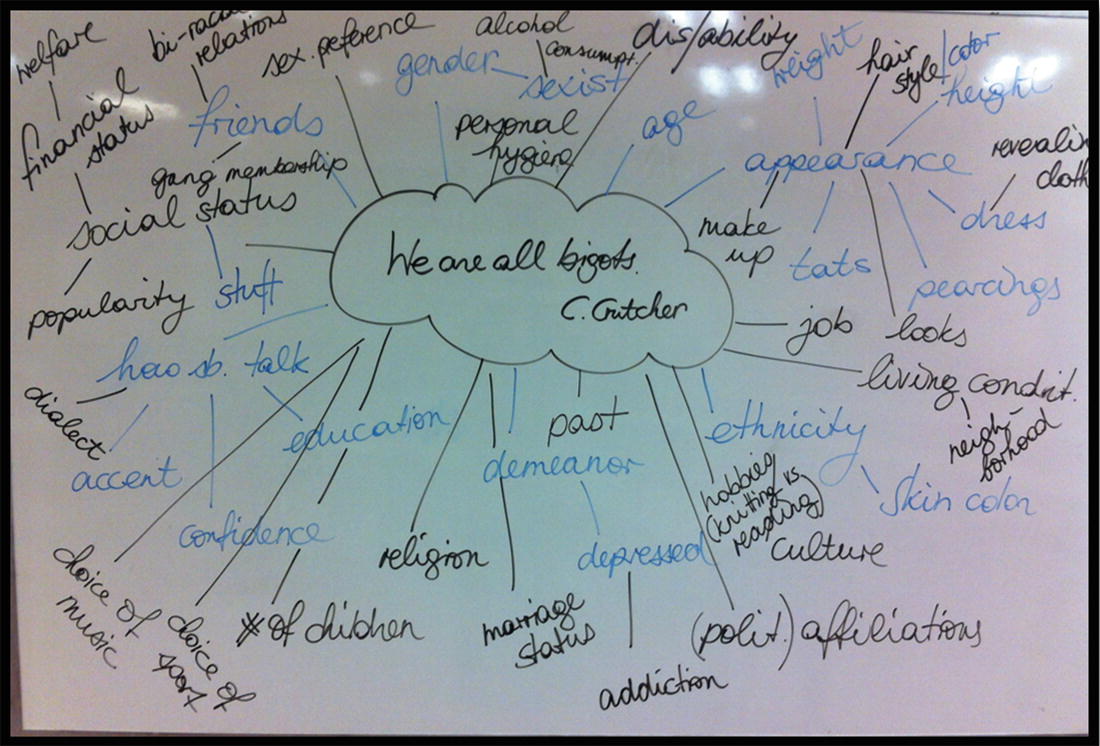 welfare
financial
status
bi-racial
relations
friends
gang membership
social status
popularity
stuff
sex. peference
gender
sexist
alcohol
consumpt.
personal
hygiene
dis/ability
age
weight
hair
style/color
height
appearance
revealin
cloth
dress
make
up
tats
pearcings
looks
We are all bigots.
C. Crutcher
job
living condit.
neigh-
borhood
how sb. talk
dialect
accent
confidence
education
choice of
music
choice of
sport
# of children
religion
marriage
status
demeanor
depressed
addiction
past
hobbies
(knitting vs
reading)
culture
ethnicity
skin color
(polit.) affiliations